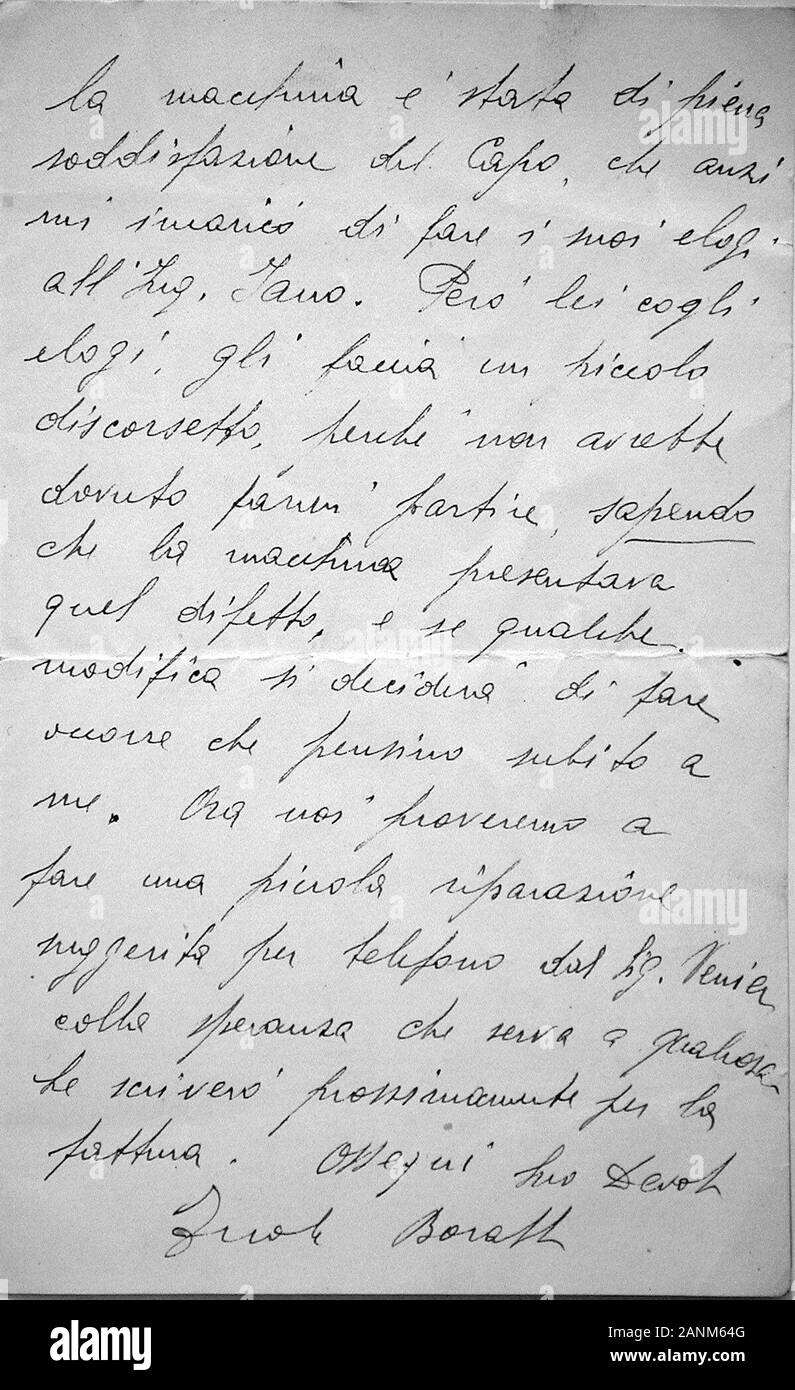 la macchina e' stata di piena
soddisfazione del Capo, che anzi
mi incaricó di fare i suoi elogi
all'Ing. Jano. Peró lei cogli
elogi, gli faccia un piccolo
discorsetto, perche non avrebbe
dovuto farmi partire, sapendo
che la macchina presentava
quel difetto, e se qualche
modifica si deciderà di fare
occorre che pensino subito a
me. Ora noi proveremo a
fare una piccola riparazione
suggerita per telefono dal Sig. Venier
colla speranza che serva a qualcosa
Le scriveró prossimamente per la
fattura. Ossequi suo Devot
Ercole Boratt
alamy
alamy
alamy
a
a
a
a
a
alamy
Image ID: 2ANM64G
www.alamy.com